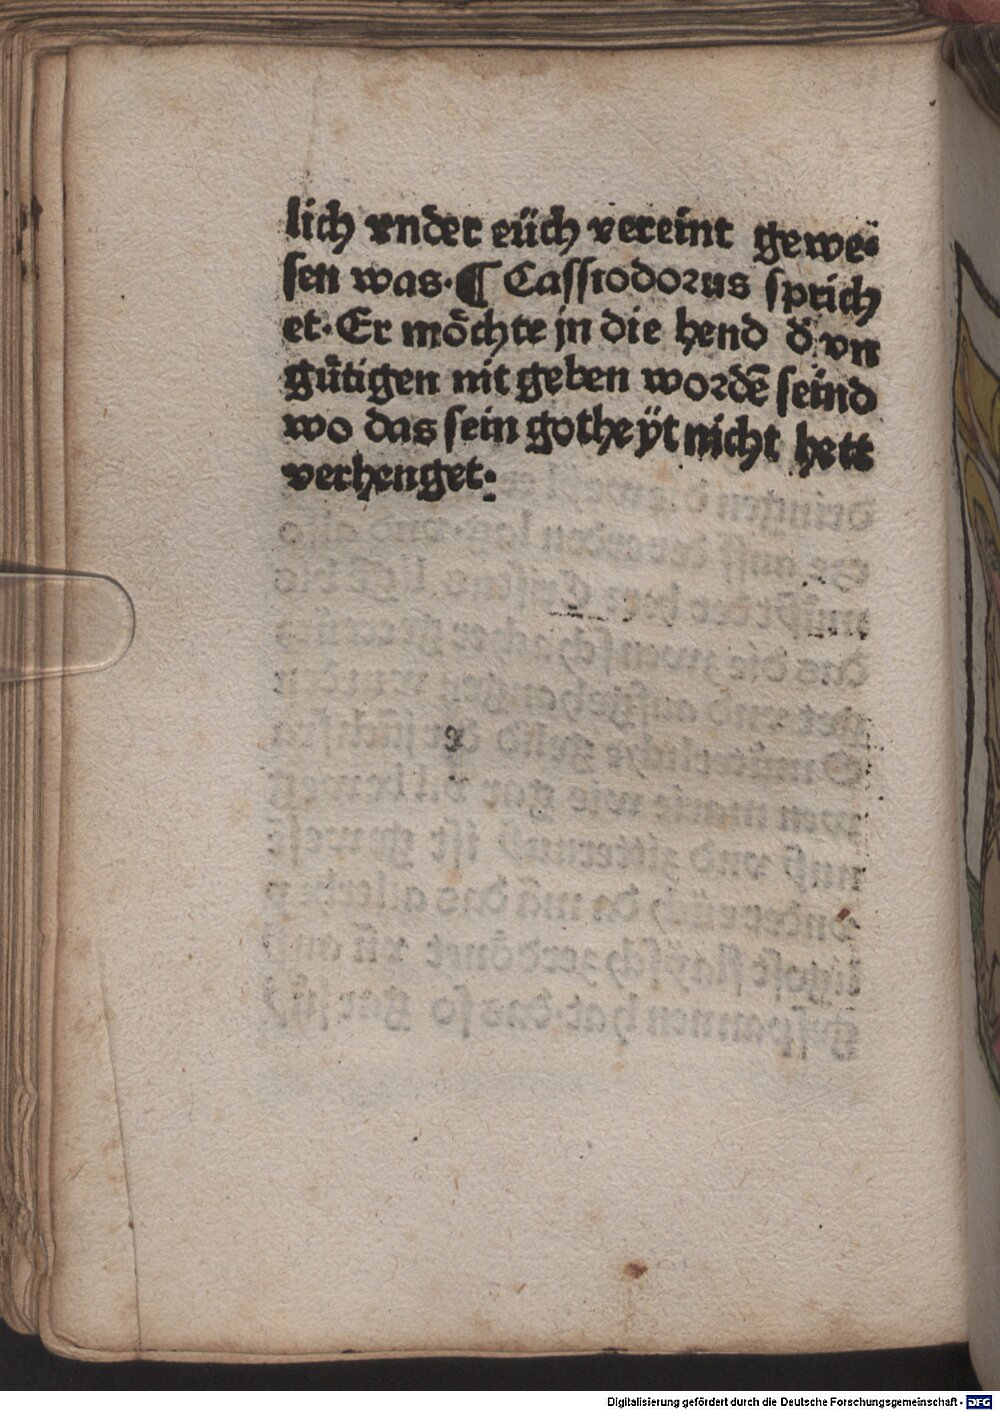 lich vnder eüch vereint gewe⸗
sen was. ¶ Cassiodorus sprich
et. Er moͤchte in die hend d̕ vn
guͤtigen nit geben wordē seind
wo das sein gotheÿt nicht hett
verhenget.
Digitalisierung gefördert durch die Deutsche Forschungsgemeinschaft - DFG